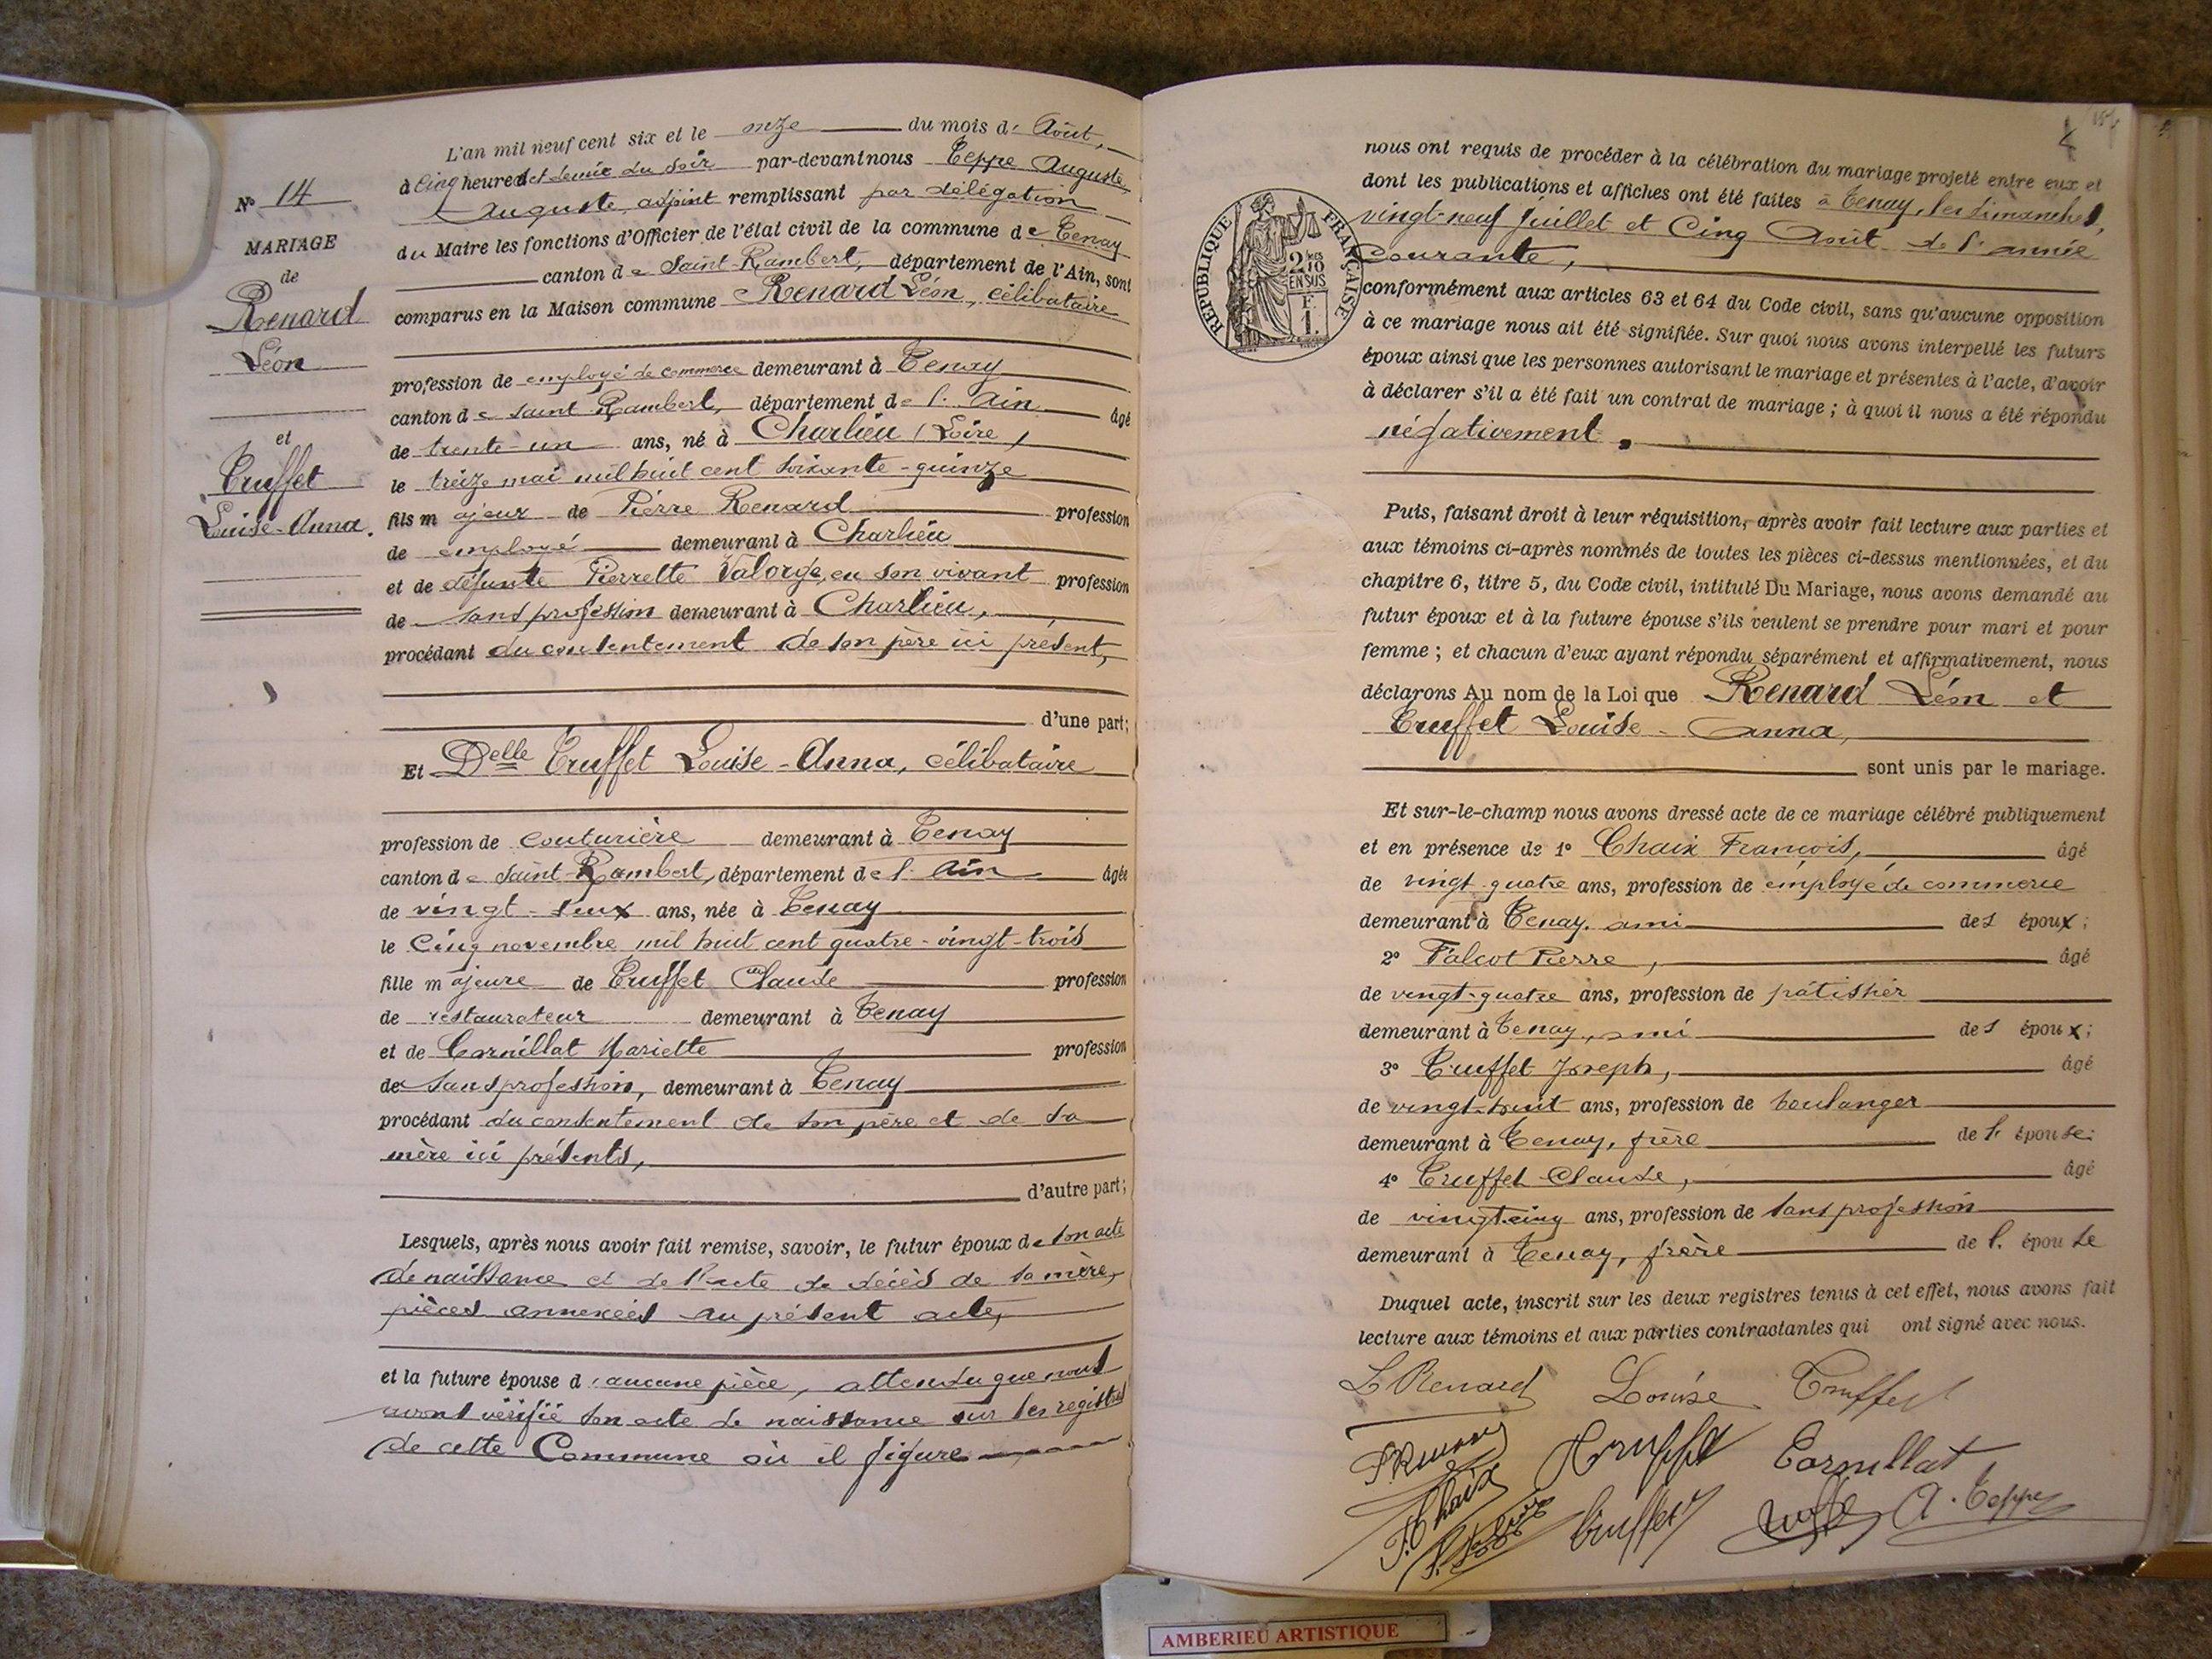 L'an mil neuf cent six et le onze du mois d' Août,
à Cinq heures et demie du soir par-devant nous Teppe Auguste
Auguste, adjoint remplissant par délégation
du Maire les fonctions d'Officier de l'état civil de la commune de Tenay
canton de Saint-Rambert, département de l'Ain, sont
comparus en la Maison commune Renard Léon, célibataire
profession de employé de commerce demeurant à Tenay
canton de Saint Rambert, département de l'Ain âgé
de trente-un ans, né à Charlieu (Loire)
le treize mai mil huit cent soixante-quinze
fils majeur de Pierre Renard profession
de employé demeurant à Charlieu
et de défunte Pierrette Valorge, en son vivant profession
de sans profession demeurant à Charlieu,
procédant du consentement de son père ici présent,
d'une part;
Et Delle Truffet Louise-Anna, célibataire
profession de couturière demeurant à Tenay
canton de Saint-Rambert, département de l'Ain âgée
de vingt-deux ans, née à Tenay
le Cinq novembre mil huit cent quatre-vingt-trois
fille majeure de Truffet Claude profession
de restaurateur demeurant à Tenay
et de Cornillat Mariette profession
de sans profession, demeurant à Tenay
procédant du consentement de son père et de sa
mère ici présents,
d'autre part;
Lesquels, après nous avoir fait remise, savoir, le futur époux de son acte
de naissance et de l'acte de décès de sa mère,
pièces annexées au présent acte,
et la future épouse d'aucune pièce, attendu que nous
avons vérifié son acte de naissance sur les registres
de cette Commune où il figure
N° 14
MARIAGE
de
Renard
Léon
et
Truffet
Louise-Anna.
nous ont requis de procéder à la célébration du mariage projeté entre eux et
dont les publications et affiches ont été faites à Tenay, les dimanches,
vingt-neuf Juillet et Cinq Août de l'année
Courante,
conformément aux articles 63 et 64 du Code civil, sans qu'aucune opposition
à ce mariage nous ait été signifiée. Sur quoi nous avons interpellé les futurs
époux ainsi que les personnes autorisant le mariage et présentes à l'acte, d'avoir
à déclarer s'il a été fait un contrat de mariage; à quoi il nous a été répondu
négativement.
Puis, faisant droit à leur réquisition, après avoir fait lecture aux parties et
aux témoins ci-après nommés de toutes les pièces ci-dessus mentionnées, et du
chapitre 6, titre 5, du Code civil, intitulé Du Mariage, nous avons demandé au
futur époux et à la future épouse s'ils veulent se prendre pour mari et pour
femme; et chacun d'eux ayant répondu séparément et affirmativement, nous
déclarons Au nom de la Loi que Renard Léon et
Truffet Louise-Anna,
sont unis par le mariage.
Et sur-le-champ nous avons dressé acte de ce mariage célébré publiquement
et en présence de 1° Chaix François, âgé
de vingt-quatre ans, profession de employé de commerce
demeurant à Tenay, ami des époux;
2° Falcot Pierre, âgé
de vingt-quatre ans, profession de pâtissier
demeurant à Tenay, ami des époux;
3° Truffet Joseph, âgé
de vingt-huit ans, profession de boulanger
demeurant à Tenay, frère de l'épouse;
4° Truffet Claude, âgé
de vingt-cinq ans, profession de sans profession
demeurant à Tenay, frère de l'épouse
Duquel acte, inscrit sur les deux registres tenus à cet effet, nous avons fait
lecture aux témoins et aux parties contractantes qui ont signé avec nous.
L Renard Louise Truffet
Truffet Cornillat
F. Chaix Truffet A. Teppe
RÉPUBLIQUE FRANÇAISE
2/10 EN SUS
F. 1.
AMBERIEU ARTISTIQUE